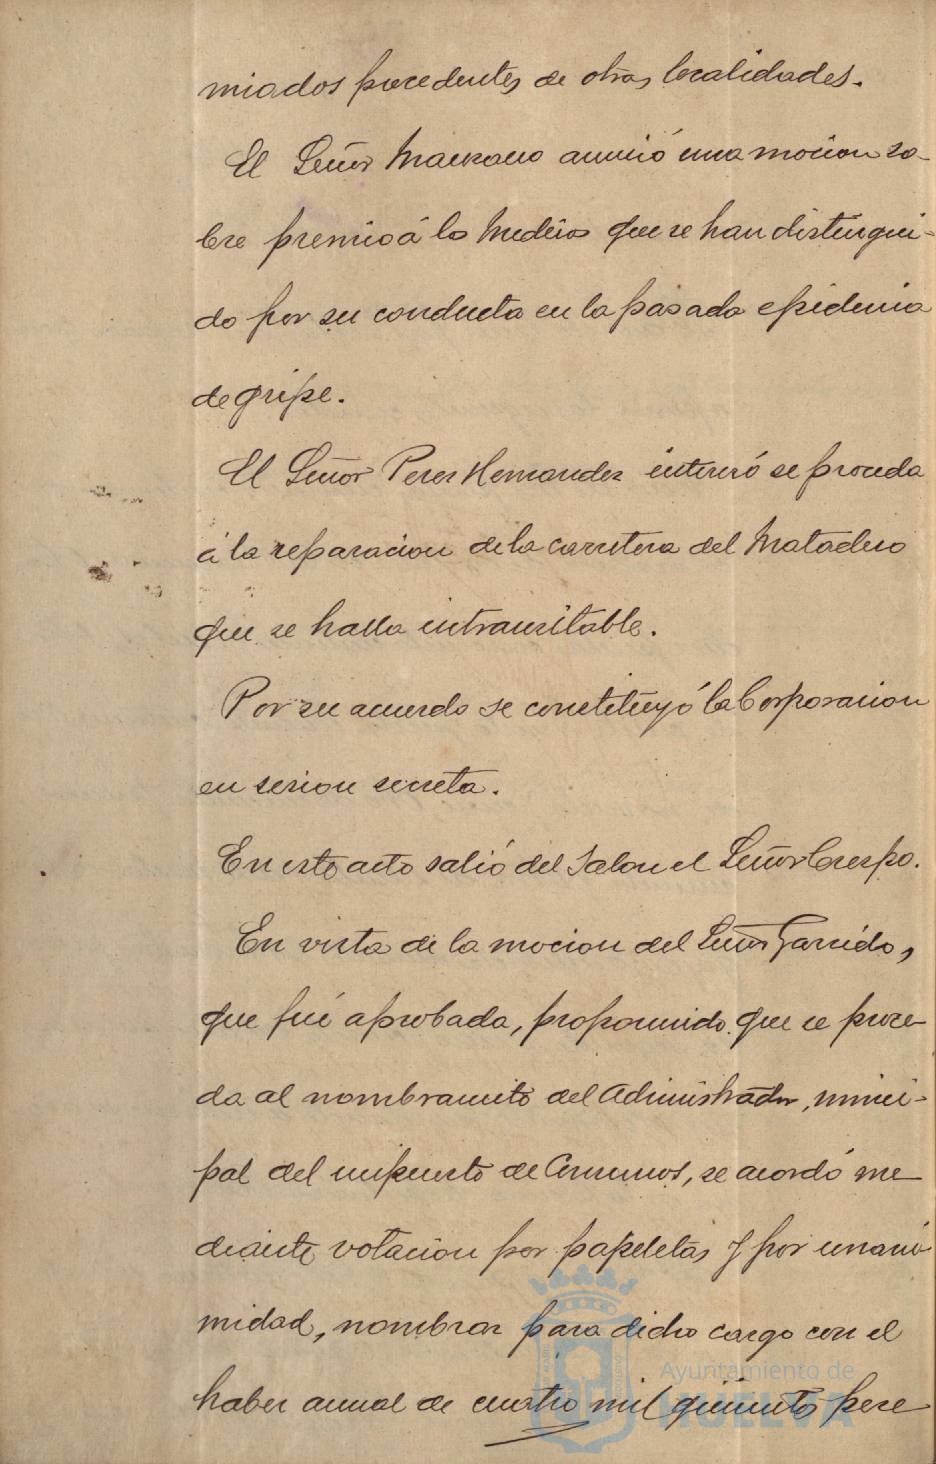 miados procedentes de otras localidades.
El Señor Manzano anunció una mocion so-
bre premio á los Medicos que se han distingui-
do por su conducta en la pasada epidemia
de gripe.
El Señor Perez Hernandez interesó se proceda
á la reparacion de la carretera del Matadero
que se halla intransitable.
Por su acuerdo se constituyó la Corporacion
en sesion secreta.
En este acto salió del Salon el Señor Crespo.
En vista de la mocion del Señor Garrido,
que fué aprobada, proponiendo que se proce-
da al nombramiento del Administrador, munici-
pal del impuesto de Consumos, se acordó me-
diante votacion por papeletas y por unani-
midad, nombrar para dicho cargo con el
haber anual de cuatro mil quinientas pese-
Ayuntamiento de
HUELVA